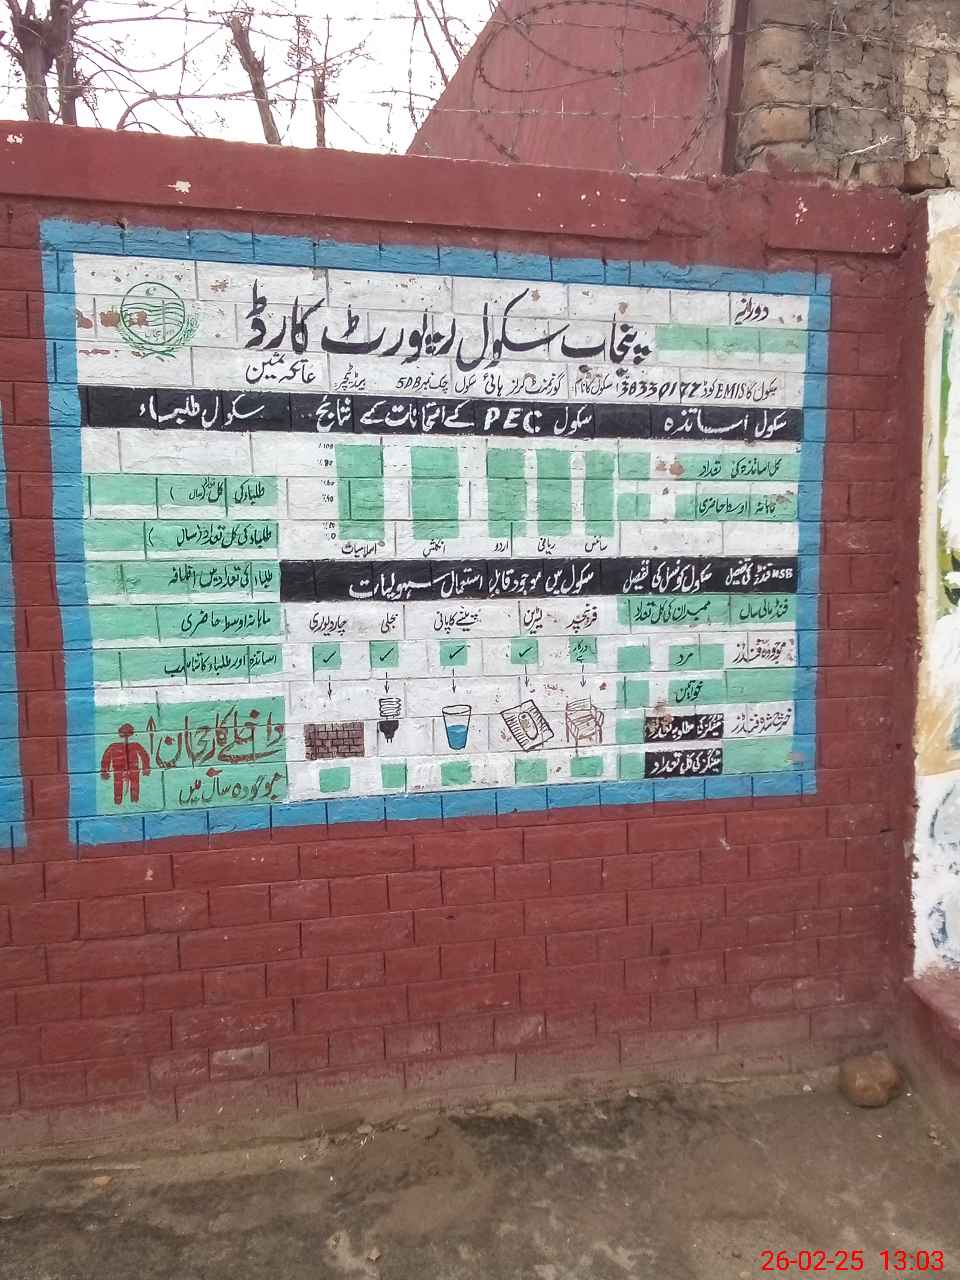 دورانیہ
پنجاب سکول رپورٹ کارڈ
سکول کا EMIS کوڈ 38330172 سکول کا نام گورنمنٹ گرلز ہائی سکول چک نمبر 5DB ہیڈ ٹیچر
سکول اساتذہ
سکول PEC کے امتحانات کے نتائج
سکول طلباء
کل اساتذہ کی تعداد
ماہانہ اوسط حاضری
سائنس ریاضی اردو انگلش اسلامیات
طلباء کی کل
طلباء کی کل تعداد (سال )
طلباء کی تعداد میں اضافہ
ماہانہ اوسط حاضری
اساتذہ اور طلباء کا تناسب
NSB فنڈز کی تفصیل
سکول کونسل کی تفصیل
سکول میں موجود قابل استعمال سہولیات
فنڈ مالی سال
ممبران کی کل تعداد
فرنیچر لیٹرین پینے کا پانی بجلی چاردیواری
موجودہ فنڈز
مرد
خواتین
خرچ شدہ فنڈز
میٹنگز کی مطلوبہ تعداد
میٹنگز کی کل تعداد
داخلے کا رجحان
موجودہ سال میں
26-02-25 13:03